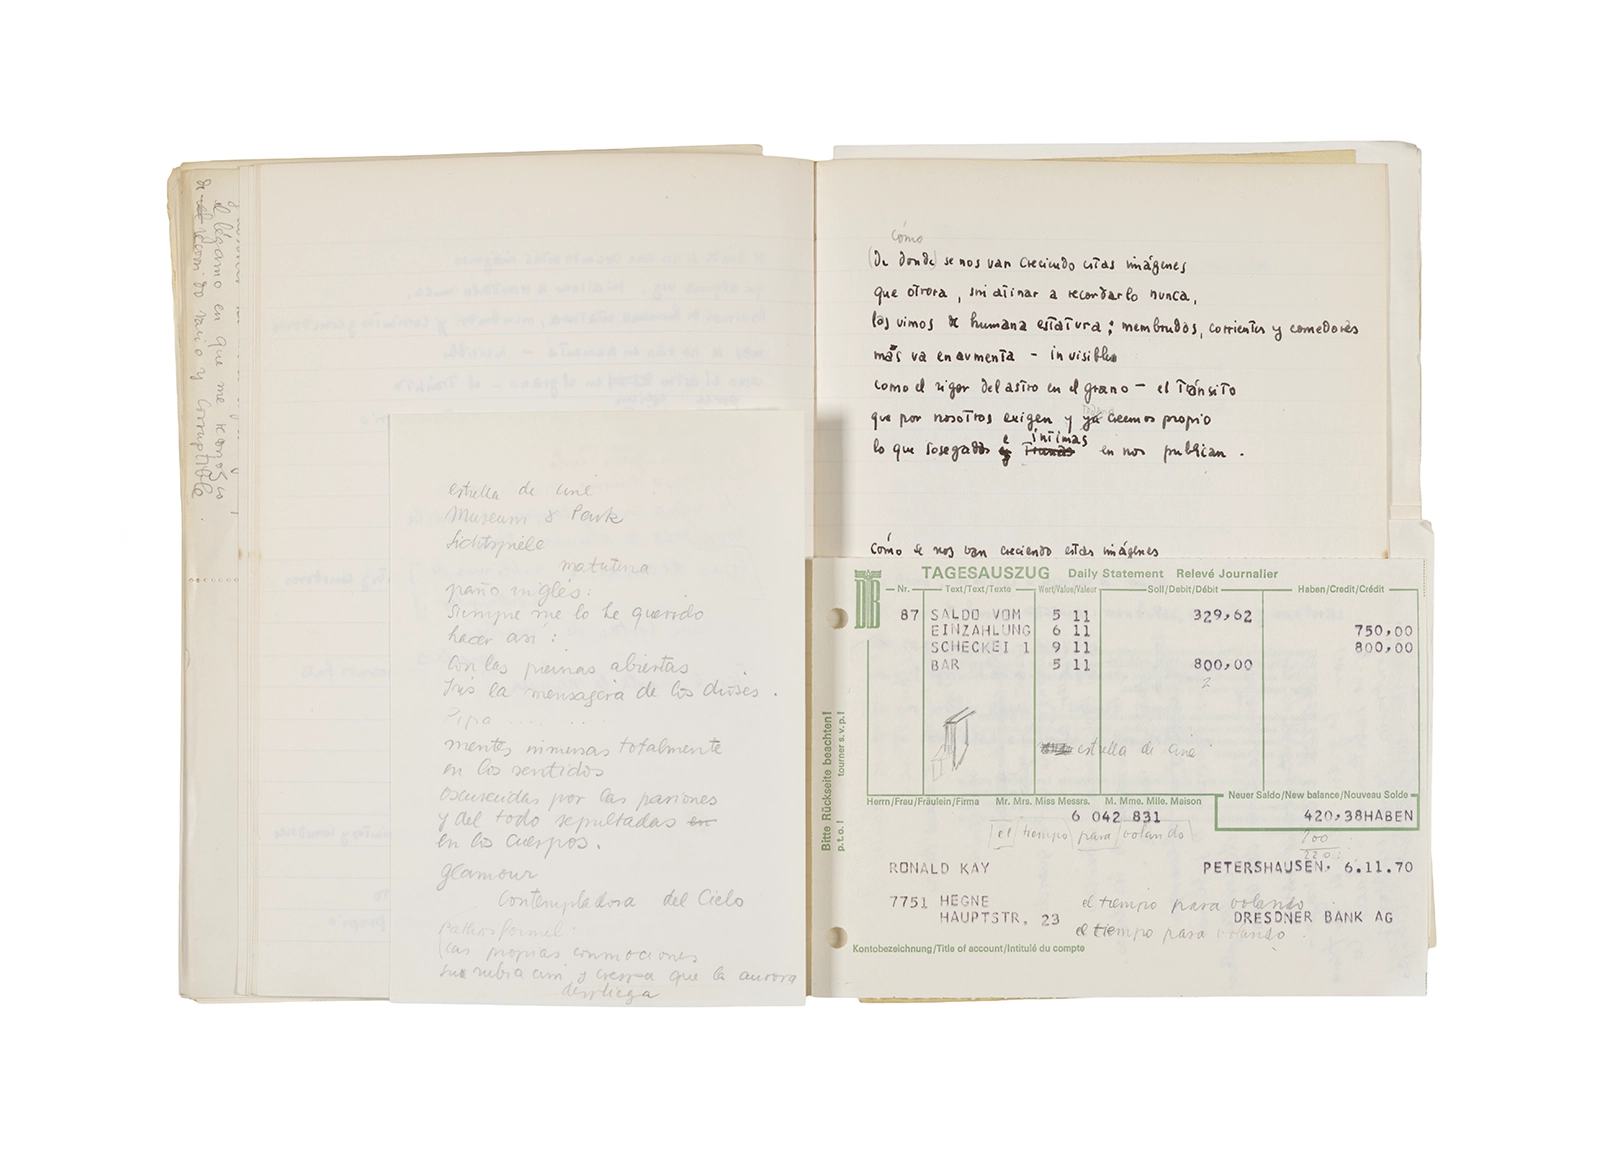 el légamo en que me
y corruptible.
estrella de cine
Museum & Park
Lichtspiele
matutina
paño inglés:
Siempre me lo he querido
hacer así:
Con las piernas abiertas
Iris la mensajera de los dioses.
Pipa .... ...
mentes inmersas totalmente
en los sentidos
oscurecidas por las pasiones
y del todo sepultadas en
en los cuerpos.
glamour
Contempladora del Cielo
Pathosformel:
las propias conmociones
su rubia crin y crespa que la aurora
despliega
cómo
(De donde) se nos van creciendo estas imágenes
que otrora, sin atinar a recordarlo nunca,
las vimos de humana estatura; membrudos, corrientes y comedores
más va en aumenta – invisible
como el rigor del astro en el grano – el Tránsito
que por nosotros exigen y ya creemos propio
e íntimas
lo que sosegadas y en nos publican.
Cómo se nos van creciendo estas imágenes
TAGESAUSZUG Daily Statement Relevé Journalier
Nr. Text/Text/Texte Wert/Value/Valeur Soll/Debit/Débit Haben/Credit/Crédit
87 SALDO VOM 5 11 329,62
EINZAHLUNG 6 11 750,00
SCHECKEI 1 9 11 800,00
BAR 5 11 800,00
2
estrella de cine
Bitte Rückseite beachten!
p.t.o.! tourner s.v.p.!
Herrn/Frau/Fräulein/Firma Mr. Mrs. Miss Messrs. M. Mme. Mlle. Maison Neuer Saldo/New balance/Nouveau Solde
6 042 831 420,38HABEN
el tiempo para volando
200
220
RONALD KAY PETERSHAUSEN, 6.11.70
7751 HEGNE el tiempo para volando
HAUPTSTR. 23 DRESDNER BANK AG
el tiempo para volando
Kontobezeichnung/Title of account/Intitulé du compte